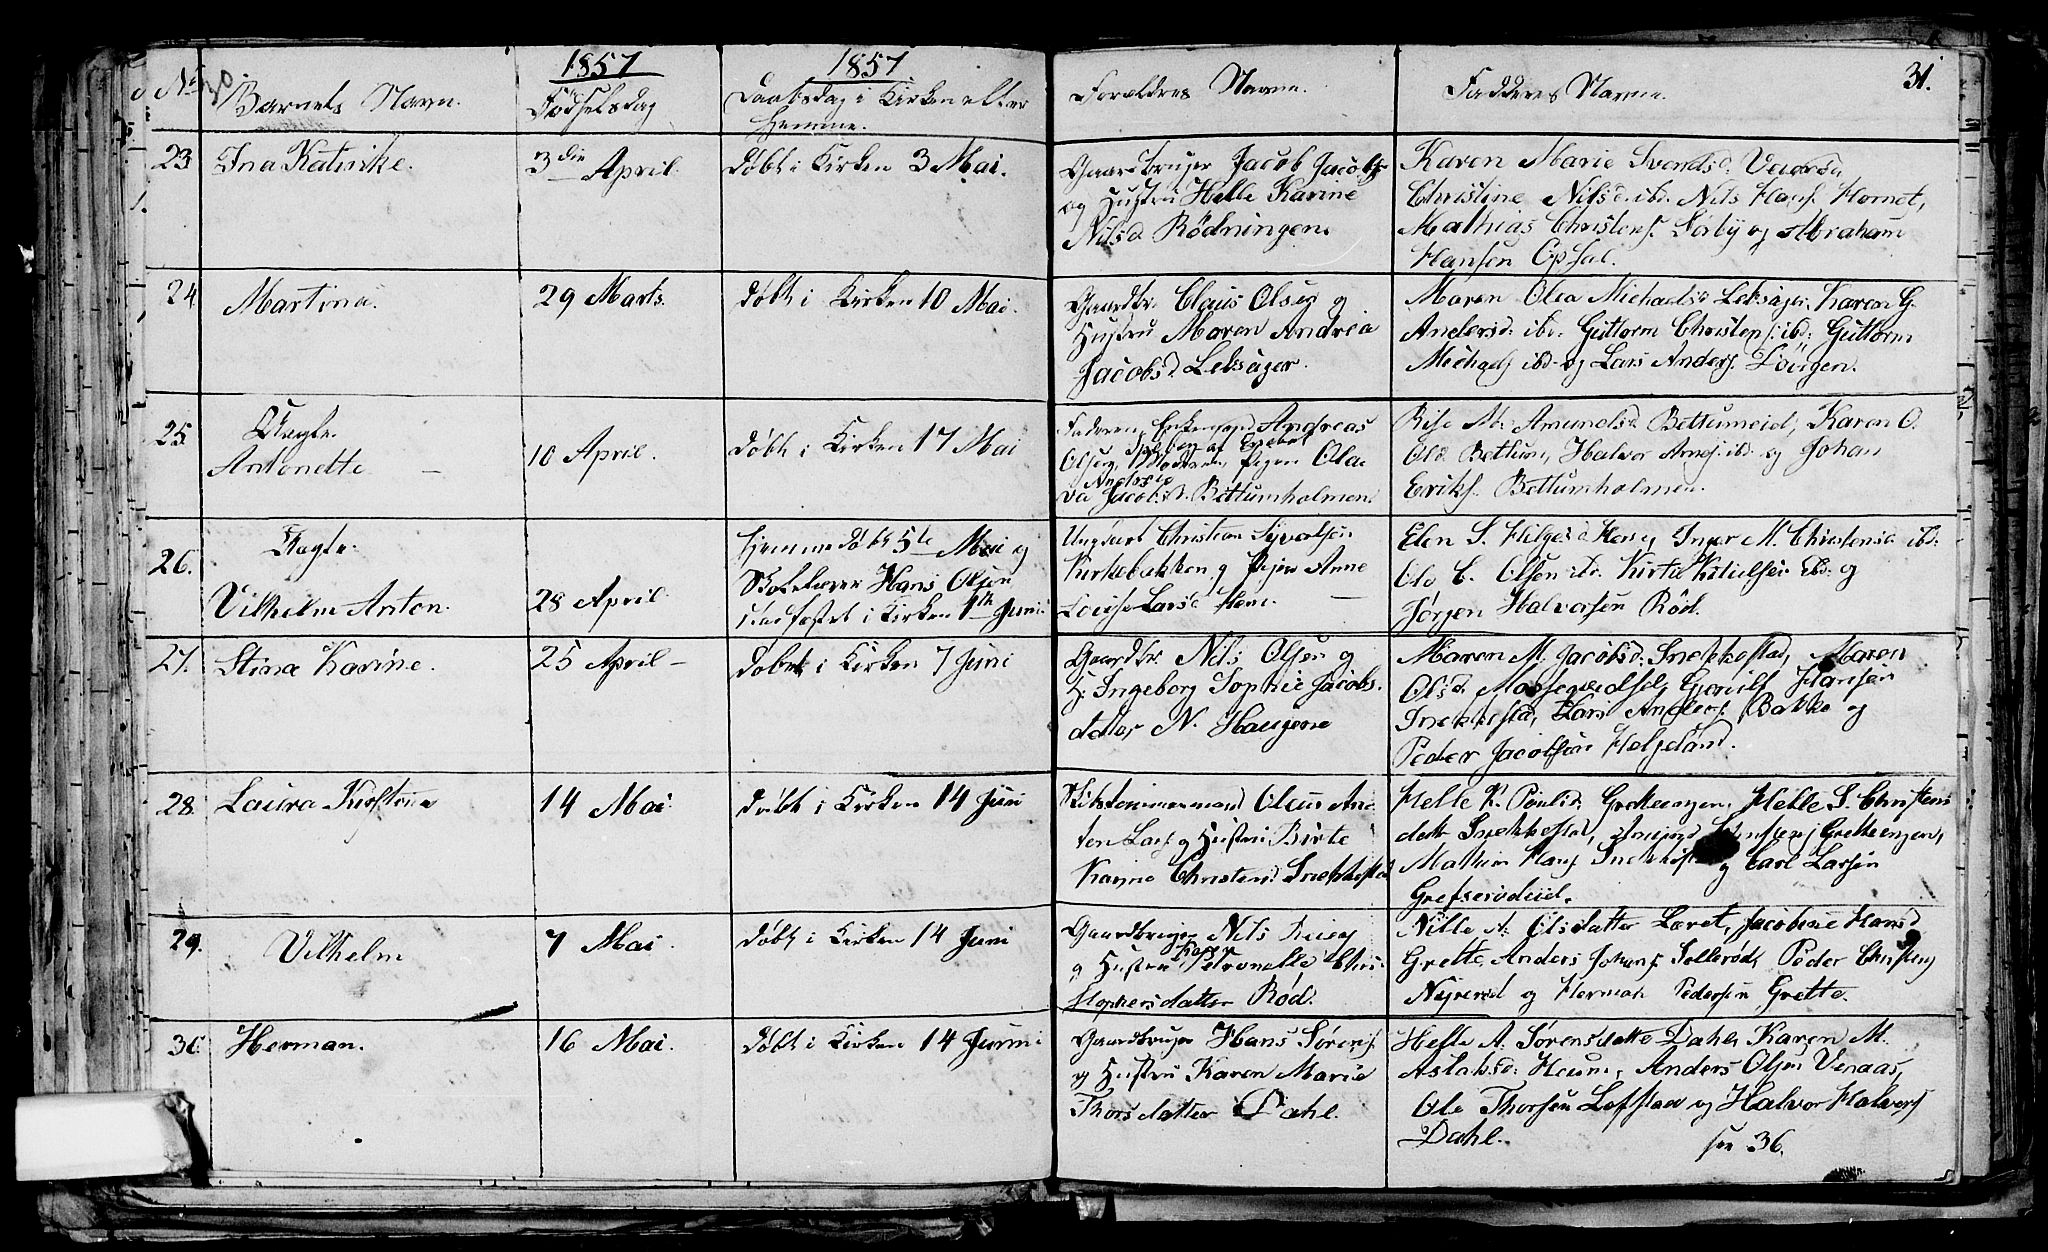 30
31.
No
Barnets Navn.
1857
Fødselsdag
1857
Daabsdag i Kirken eller
Hjemme.
Forældres Navne.
Fadderes Navne.
23
Ina Katrike.
3die April.
døbt i Kirken 3 Mai.
Gaardbruger Jacob Jacobs.
og Hustru Helle Karine
Nilsd. Rødningen.
Karen Marie Svendsd.
Christine Nilsd. ibd. Nils Hans.
Mathias Christens. Sørby og Abraham
Hansen Opsal.
24
Martina.
29 Marts.
døbt i Kirken 10 Mai.
Gaardbr. Claus Olsen og
Hustru Maren Andrea
Jacobsd. Leksager.
Maren Olea Michaelsd. Leksager, Karen G.
Andersd. ibd. Guttorm Christens. ibd: Guttorm
Michaels. ibd. og Lars Anders.
25
Uægte.
Antonette
10 April.
døbt i Kirken 17 Mai
Faderen, Enkemand Andreas
Olsen, Moderen, Pigen Ola-
va Jacobsd. Bettumholmen.
Amundsd. Bettumeid, Karen O.
Olsd. Bettum, Halvor Arnes. ibd. og Johan
Eriks. Bettumholmen.
26.
Uægte.
Vilhelm Anton.
28 April.
hjemmedøbt 5te Mai af
Skolelærer Hans Olsen
stadfæstet i Kirken 1ste Juni.
Ungkarl Christian Syvertsen
Kirkebakken og Pigen Anne
Louise Larsd. Hem.
Elen S. Helgesd. Hem, Inger M. Christensd. ibd.
Ole C. Olsen ibd. Ketilsen ibd. og
Jørgen Halvorsen Rød.
27.
Stina Karine.
25 April
døbt i Kirken 7 Juni
Gaardbr. Nils Olsen og
H. Ingeborg Sophie Jacobs-
datter N. Haugene
Maren M. Jacobsd. Snekkestad, Maren
Olsd. Hansen
Snekkestad, Lars Anders. Bakke og
Peder Jacobsen Helgeland.
28.
Laura Kirstine
14 Mai.
døbt i Kirken 14 Juni
Skibstømmermand Olaus An-
ton Lars. og Hustru Birte
Karine Christensd. Snekkestad
Helle K. Poulsd. Gretteengen, Helle S. Christens
datt. Snekkestad, Gretteengen,
Mathias Hans. Snekkestad og Carl Larsen
29.
Vilhelm
7 Mai.
døbt i Kirken 14 Juni
Gaardbruger Nils
og Hustru Karen Petronelle Chri-
stophersdatter Rød.
Nille A. Olsdatter Løvet, Jacobine Hansd.
Grette, Anders Johans. Sollerød, Peder Christens.
og Herman Pedersen Grette.
30.
Herman.
16 Mai.
døbt i Kirken 14 Juni
Gaardbruger Hans Sørens.
og Hustru Karen Marie
Thorsdatter Dahl.
Helle A. Sørensdatter Dahl, Karen M.
Aslaksd. Heum, Anders Olsen Venaas,
Ole Thorsen Lofstad og Halvor Halvors.
Dahl.
see 36.